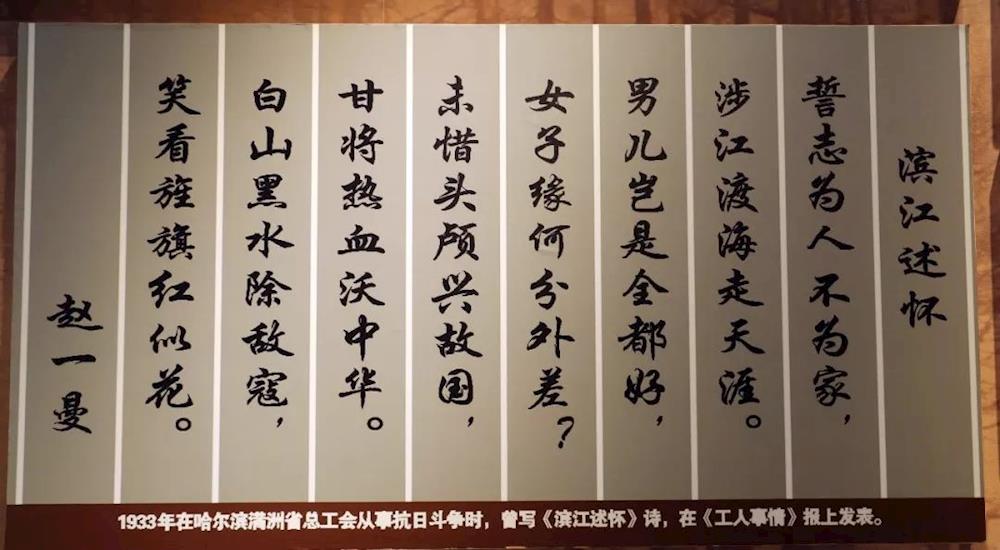 滨江述怀
誓志为人不为家，
涉江渡海走天涯。
男儿岂是全都好，
女子缘何分外差？
未惜头颅兴故国，
甘将热血沃中华。
白山黑水除敌寇，
笑看旌旗红似花。
赵一曼
1933年在哈尔滨满洲省总工会从事抗日斗争时，曾写《滨江述怀》诗，在《工人事情》报上发表。